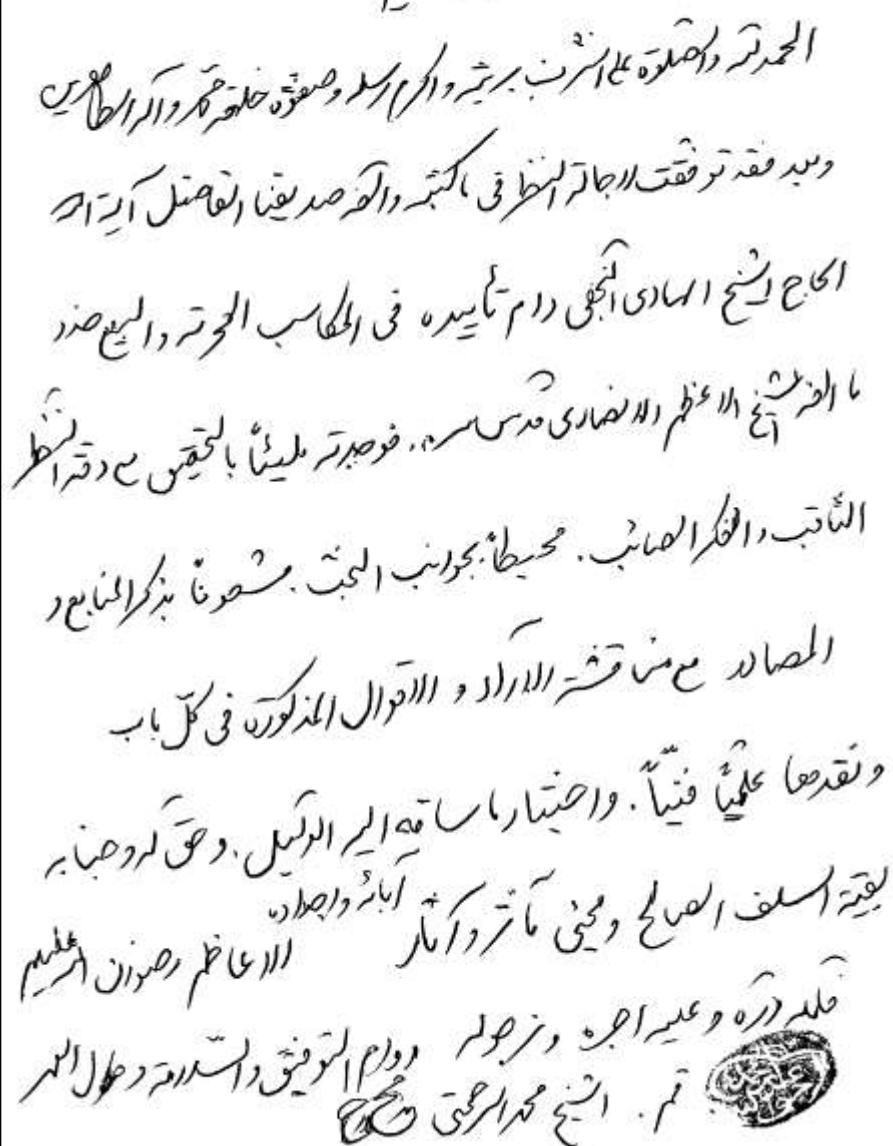 الحمد لله والصلوة على اشرف بريته واكرم رسله وصفوة خلقه محمد وآله الطاهرين
وبعد فقد توفقت لاجالة النظر في ماكتبه والّفه صديقنا الفاضل آية الله
الحاج الشيخ الهادى النجفى دام تأييده في المكاسب المحرمة والبيع حذو
ما الفه الشيخ الاعظم الانصارى قدس سره. فوجدته مليئاً بالتحقيق مع دقة النظر
الثاقب والفكر الصائب. محيطاً بجوانب البحث. مشحوناً بذكر المنابع و
المصادر مع مناقشة الآراء و الاقوال المذكورة في كلّ باب
ونقدها علميّاً فنيّاً. واختيار ما ساقه اليه الدليل. وحق له وجنابه
بقية السلف الصالح ومحيى مآثر وآثار آبائه واجداده الاعاظم رضوان الله عليهم
فلله درّه وعليه اجره ونرجو له دوام التوفيق والسّلامة وطول العمر
قم. الشيخ محمد الرحمتى